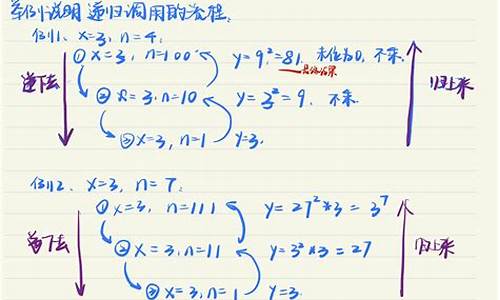 举例说明递归调用的流程:
例1、x=3, n=4:
① x=3, n=100 y=9²=81. 末位为0, 不乘.
最终结果
递下去 ② x=3, n=10 y=3²=9. 不乘. 归上来
③ x=3, n=1 y=3.
例2、x=3, n=7:
① x=3, n=111 y=27²*3=3⁷
递下去 ② x=3, n=11 y=3²*3=27 归上来
③ x=3, n=1 y=3